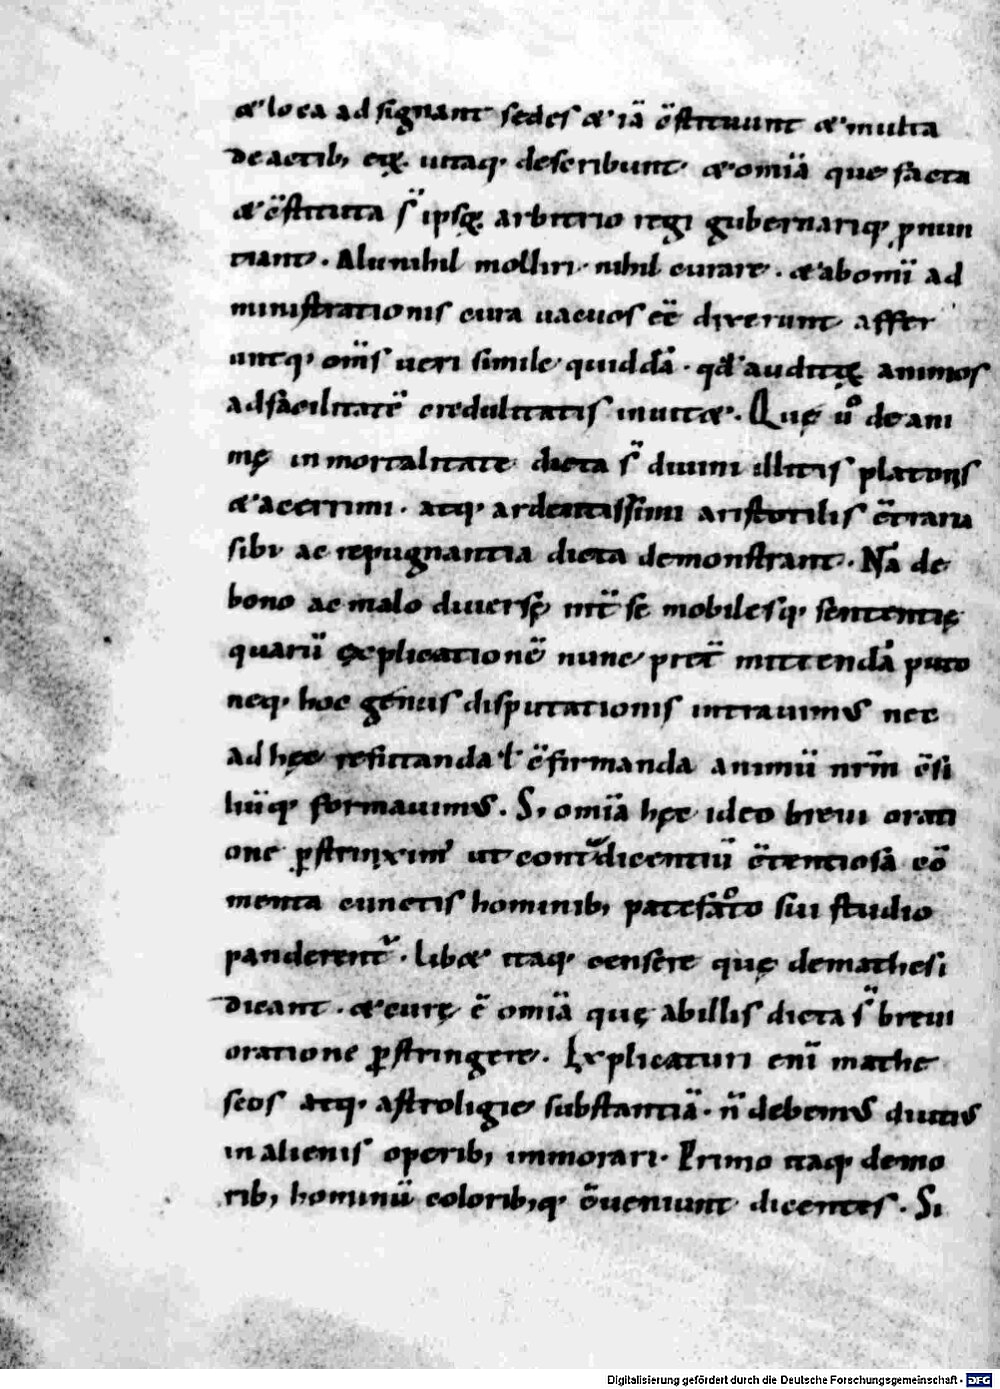 & loca adsignant sedes & iā c̄stituunt & multa
de actib; eoꝝ. uitaq; describunt & omīa que facta
& c̄stituta s̄ ipsoꝝ arbitrio regi gubernariq; pnun
tiant. Alii nihil molliri. nihil curare. & ab omiū ad
ministrationis cura uacuos ēē dixerunt affer
untq; om̄s ueri simile quiddā. qd' audituꝝ animos
ad facilitatē credulitatis inuitæ. Quę ů de ani
mę inmortalitate dicta s̄ diuini illius platonis
& acerrimi. atq; ardentissimi aristotilis c̄traria
sibi ac repugnantia dicta demonstrant. Nā de
bono ac malo diuersę int̄ se mobilesq; sententię
quarū explicationē nunc pret̄ mittendā puto
neq; hoc genus disputationis intrauimus nec
ad hęc refutanda ł c̄firmanda animū nr̄m c̄si
liūq; formauimus. Si omīa hęc ideo breui orati
one ꝑstrinximꝰ ut contͮdicentiū c̄tentiosā cō
menta cunctis hominib; patefacto sui studio
panderent᷑. Lib& itaq; censere quę de mathesi
dicant. & cure ē omīa quę ab illis dicta s̄ breui
oratione ꝑstringere. Explicaturi enī mathe
seos atq; astroligie substantiā. n̄ debemus diutius
in alienis operib; immorari. Primo itaq; de mo
rib; hominū colorib;q; c̄ueniunt dicentes. Si
Digitalisierung gefördert durch die Deutsche Forschungsgemeinschaft - DFG